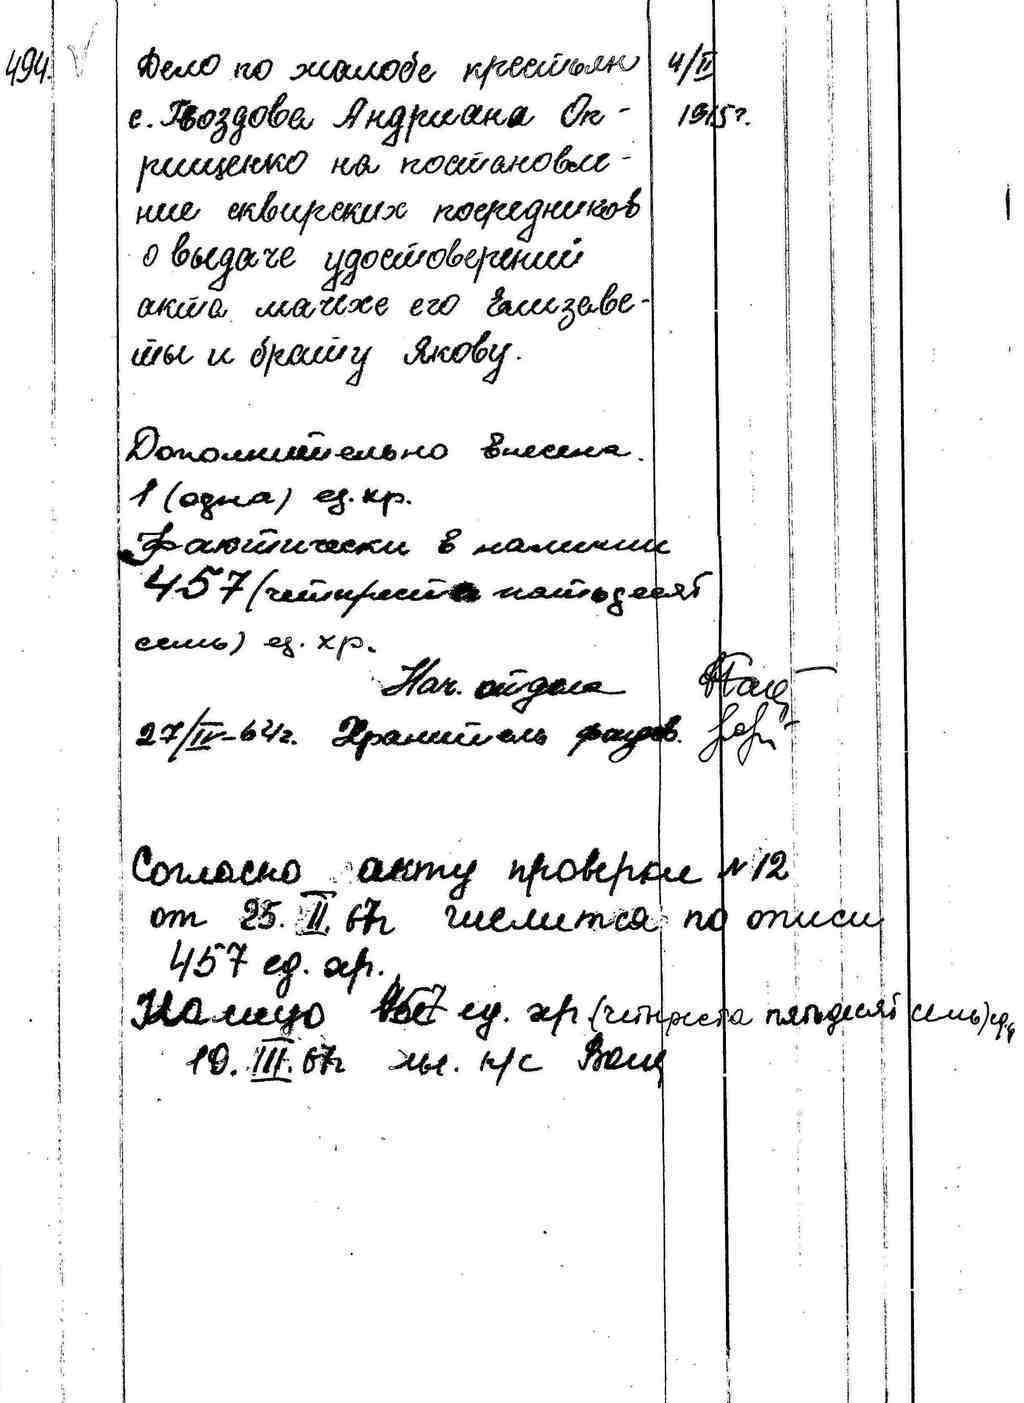 494. Дело по жалобе крестьян 4/II
с. Гвоздова Андриана Оп- 1915 г.
рищенко на постановле-
ние сквирских посредников
о выдаче удостоверений
акта мачихе его Елизаве-
ты и брату Якову.
Дополнительно внесена
1 (одна) ед. хр.
Фактически в наличии
457 (четыреста пятьдесят
семь) ед. хр.
Нач. отдела
27/IV-64г. Хранитель фондов.
Согласно акту проверки № 12
от 25. II. 67г числится по описи
457 ед. хр.
Налицо 457 ед. хр (четыреста пятьдесят семь) ед.
10. III. 67г н/с